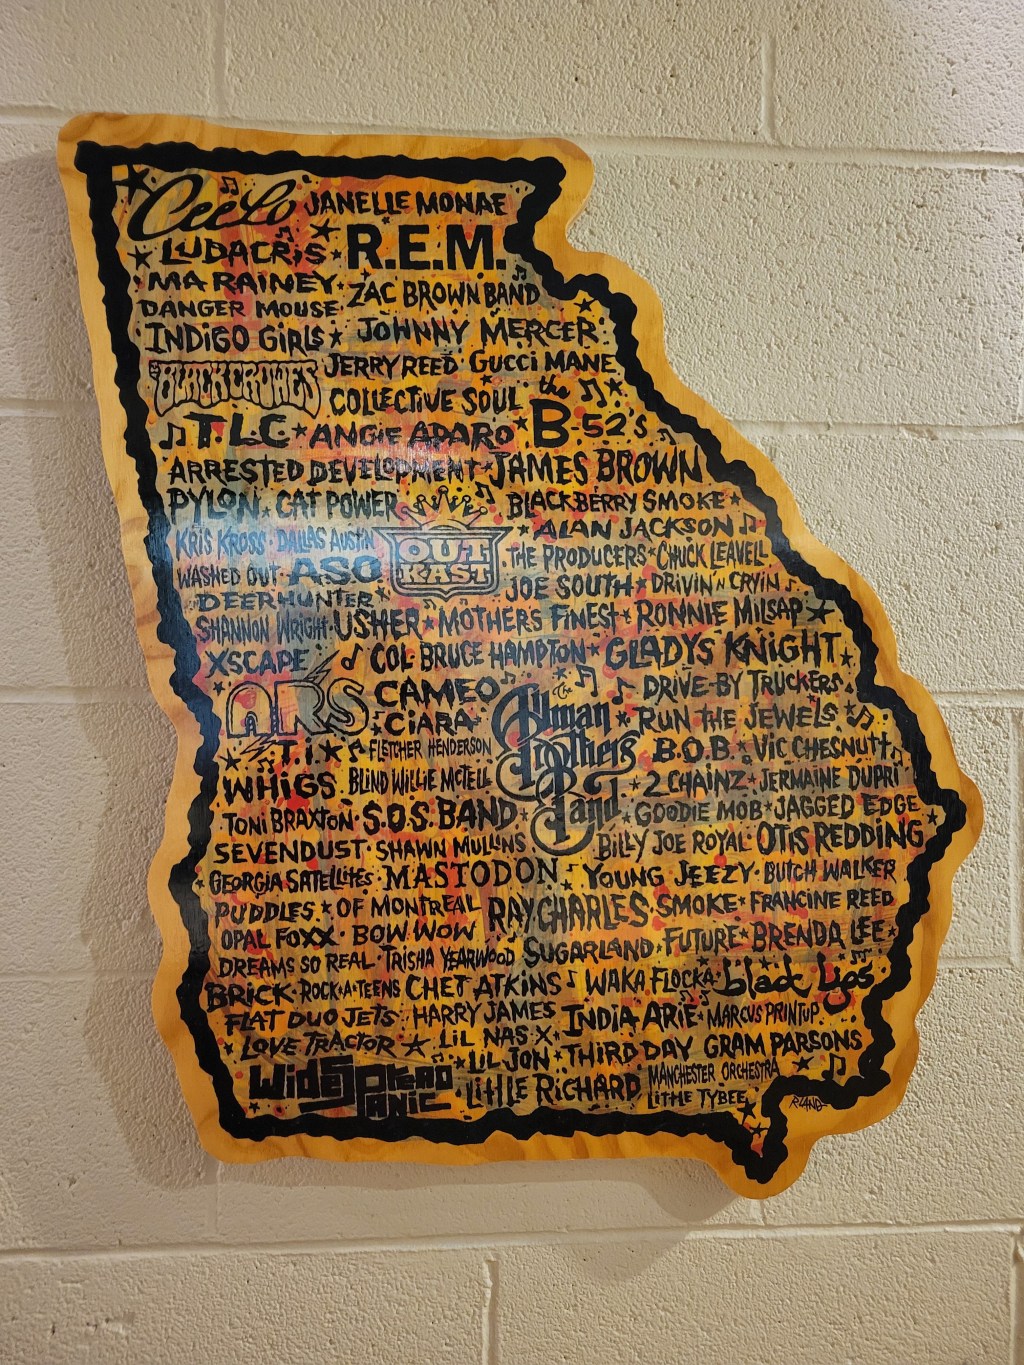 CeeLo JANELLE MONAE
LUDACRIS R.E.M.
MA RAINEY ZAC BROWN BAND
DANGER MOUSE
INDIGO GIRLS JOHNNY MERCER
THE BLACK CROWES JERRY REED · GUCCI MANE
COLLECTIVE SOUL the B·52's
T.L.C ANGIE APARO
ARRESTED DEVELOPMENT JAMES BROWN
PYLON CAT POWER BLACKBERRY SMOKE
ALAN JACKSON
KRIS KROSS · DALLAS AUSTIN OUTKAST THE PRODUCERS CHUCK LEAVELL
WASHED OUT ASO JOE SOUTH DRIVIN' N CRYIN
DEERHUNTER
SHANNON WRIGHT · USHER MOTHERS FINEST RONNIE MILSAP
XSCAPE COL. BRUCE HAMPTON GLADYS KNIGHT
ARS CAMEO The Allman Brothers Band DRIVE-BY TRUCKERS
CIARA RUN THE JEWELS
T.I. FLETCHER HENDERSON B.O.B VIC CHESNUTT
WHIGS BLIND WILLIE McTELL 2 CHAINZ JERMAINE DUPRI
TONI BRAXTON · S.O.S. BAND GOODIE MOB JAGGED EDGE
SEVENDUST · SHAWN MULLINS BILLY JOE ROYAL · OTIS REDDING
GEORGIA SATELLITES MASTODON YOUNG JEEZY · BUTCH WALKER
PUDDLES OF MONTREAL RAY CHARLES SMOKE FRANCINE REED
OPAL FOXX · BOW WOW SUGARLAND FUTURE BRENDA LEE
DREAMS SO REAL · TRISHA YEARWOOD
BRICK · ROCK*A*TEENS CHET ATKINS WAKA FLOCKA black lips
FLAT DUO JETS HARRY JAMES INDIA ARIE MARCUS PRINTUP
LOVE TRACTOR LIL NAS X
LIL JON THIRD DAY GRAM PARSONS
WIDESPREAD PANIC LITTLE RICHARD MANCHESTER ORCHESTRA
LITTLE TYBEE
R.LAND